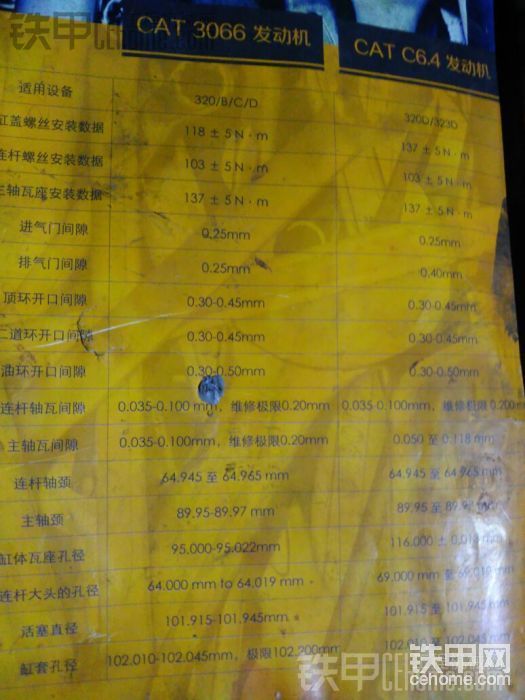 铁甲 cehome.com
CAT 3066 发动机 CAT C6.4 发动机
适用设备 320/B/C/D 320D/323D
缸盖螺丝安装数据 118 ± 5 N · m 137 ± 5 N · m
连杆螺丝安装数据 103 ± 5 N · m 103 ± 5 N · m
主轴瓦座安装数据 137 ± 5 N · m 137 ± 5 N · m
进气门间隙 0.25mm 0.25mm
排气门间隙 0.25mm 0.40mm
顶环开口间隙 0.30-0.45mm 0.30-0.45mm
二道环开口间隙 0.30-0.45mm 0.30-0.45mm
油环开口间隙 0.30-0.50mm 0.30-0.50mm
连杆轴瓦间隙 0.035-0.100 mm，维修极限0.20mm 0.035-0.100mm，维修极限0.200mm
主轴瓦间隙 0.035-0.100mm，维修极限0.20mm 0.050 至 0.118 mm
连杆轴颈 64.945 至 64.965 mm 64.945 至 64.965 mm
主轴颈 89.95-89.97 mm 89.95 至 mm
缸体瓦座孔径 95.000-95.022mm 116.000 ± mm
连杆大头的孔径 64.000 mm to 64.019 mm 69.000 mm 至 69.019 mm
活塞直径 101.915-101.945mm 101.915 至 101.945 mm
缸套孔径 102.010-102.045mm，极限102.200mm 102.010 至 102.045 mm
铁甲 cehome
铁甲网
cehome.com